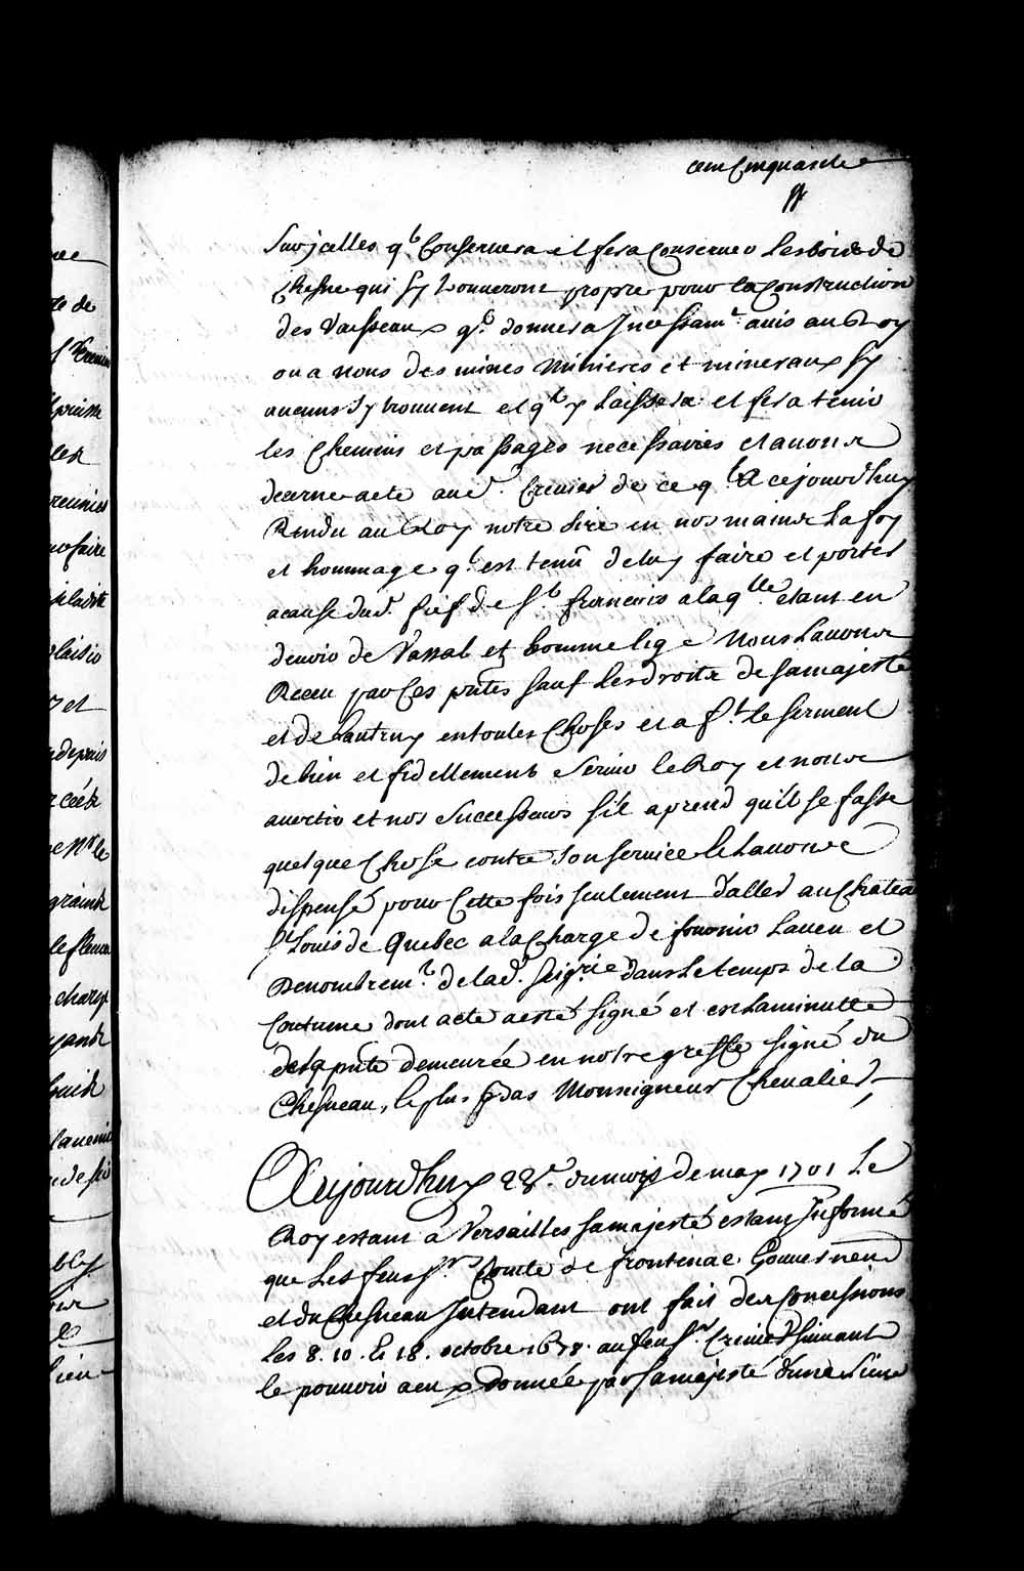 cent Cinquante
Sur jcelles q.l Conseruera et fera Conseruer les bois de
Chesne qui sy trouueront propre pour la Construction
des Vaisseaux q.l donnera Incessam.t auis au Roy
ou a nous des mines minieres et mineraux sy
aucuns sy trouuent et q.l y laissera et fera tenir
les Chemins et passages necessaires et auons
decerné acte aud. Creuier de ce q.l a cejourdhuy
Rendu au Roy notre sire en nos mains la foy
et hommage q.l est tenu deluy faire et porter
acause dud. fief de S.t francois alaq.lle estant en
deuoir de Vassal et homme lige Nous Lauons
Receu par Ces pntes sauf les droits de sa majesté
et de Lautruy en toutes Choses et a f.t le serment
de bien et fidellement seruir le Roy et nous
auertir et nos Successeurs s'il aprend qu'il se fasse
quelque Chose contre son seruice le Lauons
dispensé pour Cette fois seulement d'aller au Chateau
S.t Louis de Quebec a la Charge de fournir Laueu et
Denombrem.t de lad. seig.rie dans le temps de la
Coutume dont acte a esté signé et est la minutte
des pnte demeurée en notre greffe signé du
Chesneau, le plus bas Monseigneur Cheualier
Aujourdhuy 28.e du mois de may 1701 Le
Roy estant a Versailles sa majesté estant Informé
que Les feus s.rs Comte de frontenac Gouuerneur
et du Chesneau Intendant ont fait des Concessions
les 8. 10. & 18. octobre 1678. au feu s.r Creuier suiuant
le pouuoir a eux donnée par sa majesté d'une Lieue